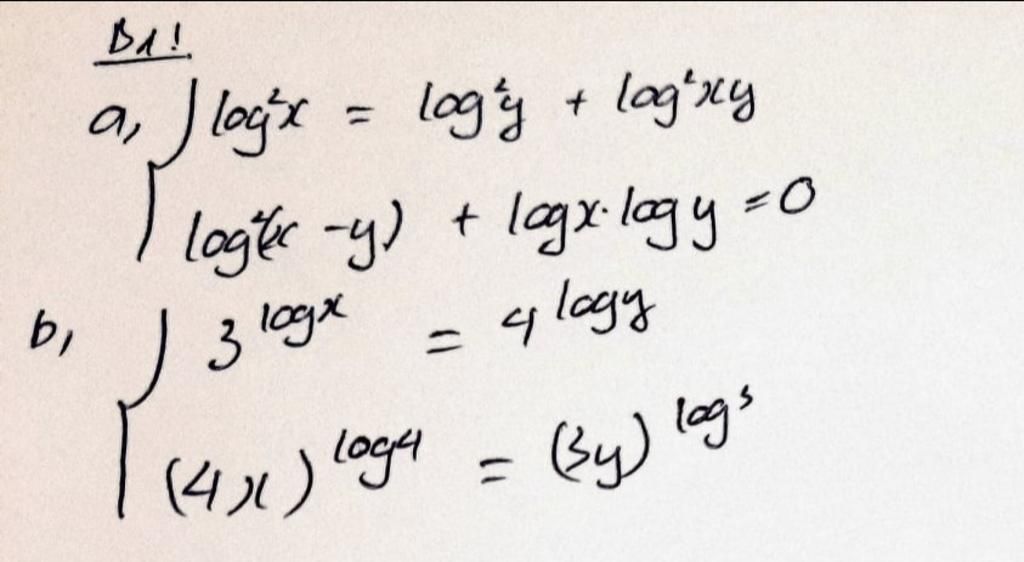 B1!
a, log²x = log²y + log²xy
log²(x -y) + logx·logy =0
b, 3^logx = 4^logy
(4x)^log4 = (3y)^log3